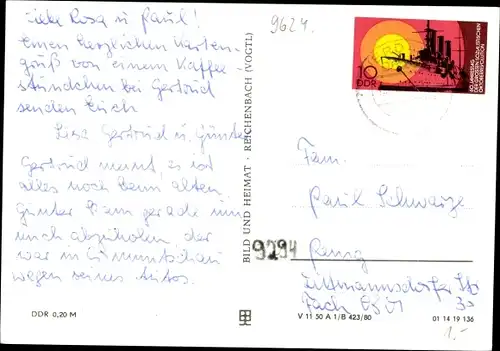 Liebe Rosa u. Paul!
Einen herzlichen Karten-
gruß von einem Kaffee-
stündchen bei Gertrud
senden Euch
Gertrud u. Günter
Gertrud meint, es ist
alles noch beim alten
Günter kam gerade um
mich abzuholen, der
war in Crimmitschau
wegen seines Autos.
DDR 0,20 M
BILD UND HEIMAT · REICHENBACH (VOGTL)
9624.
10
DDR
60. JAHRESTAG
DER GROSSEN SOZIALISTISCHEN
OKTOBERREVOLUTION
Fam.
Paul Schwarze
9294
Penig
Dittmannsdorfer Str.
30
V 11 50 A 1/B 423/80
01 14 19 136
1.-